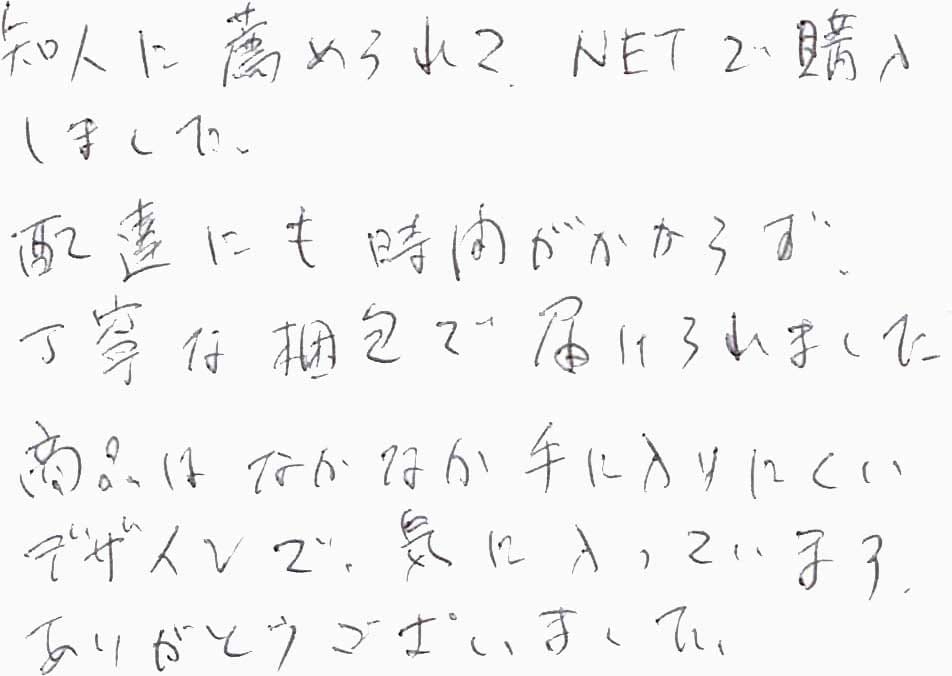 知人に薦められて、NETで購入
しました。
配達にも時間がかからず、
丁寧な梱包で届けられました
商品はなかなか手に入りにくい
デザインで、気に入っています。
ありがとうございました。